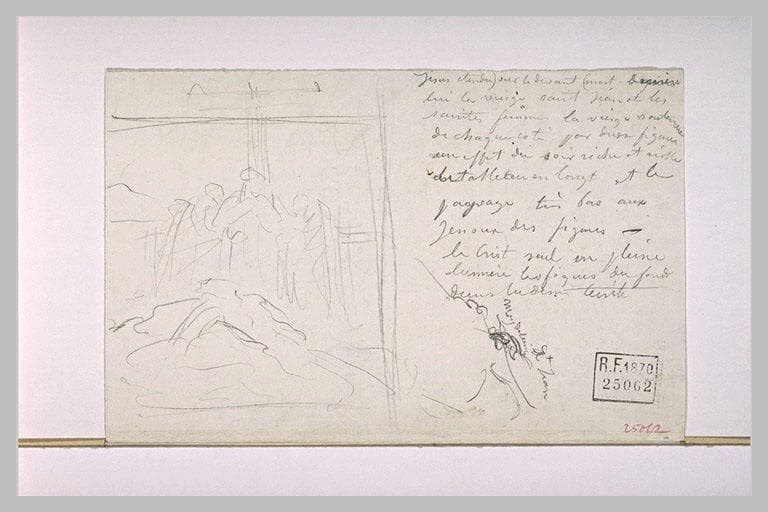 Jesus etendu sur le devant (mort
lui la vierge saint Jean et les
saintes femmes la vierge soutenue
de chaque coté par deux figures
un effet du soir riche et
le tableau en long et le
paysage très bas aux
dessous des figures —
le Crist seul en pleine
lumière les figures du fond
dans la demi teinte
Magdeleine
St Jean
R.F. 1870
25062
25062